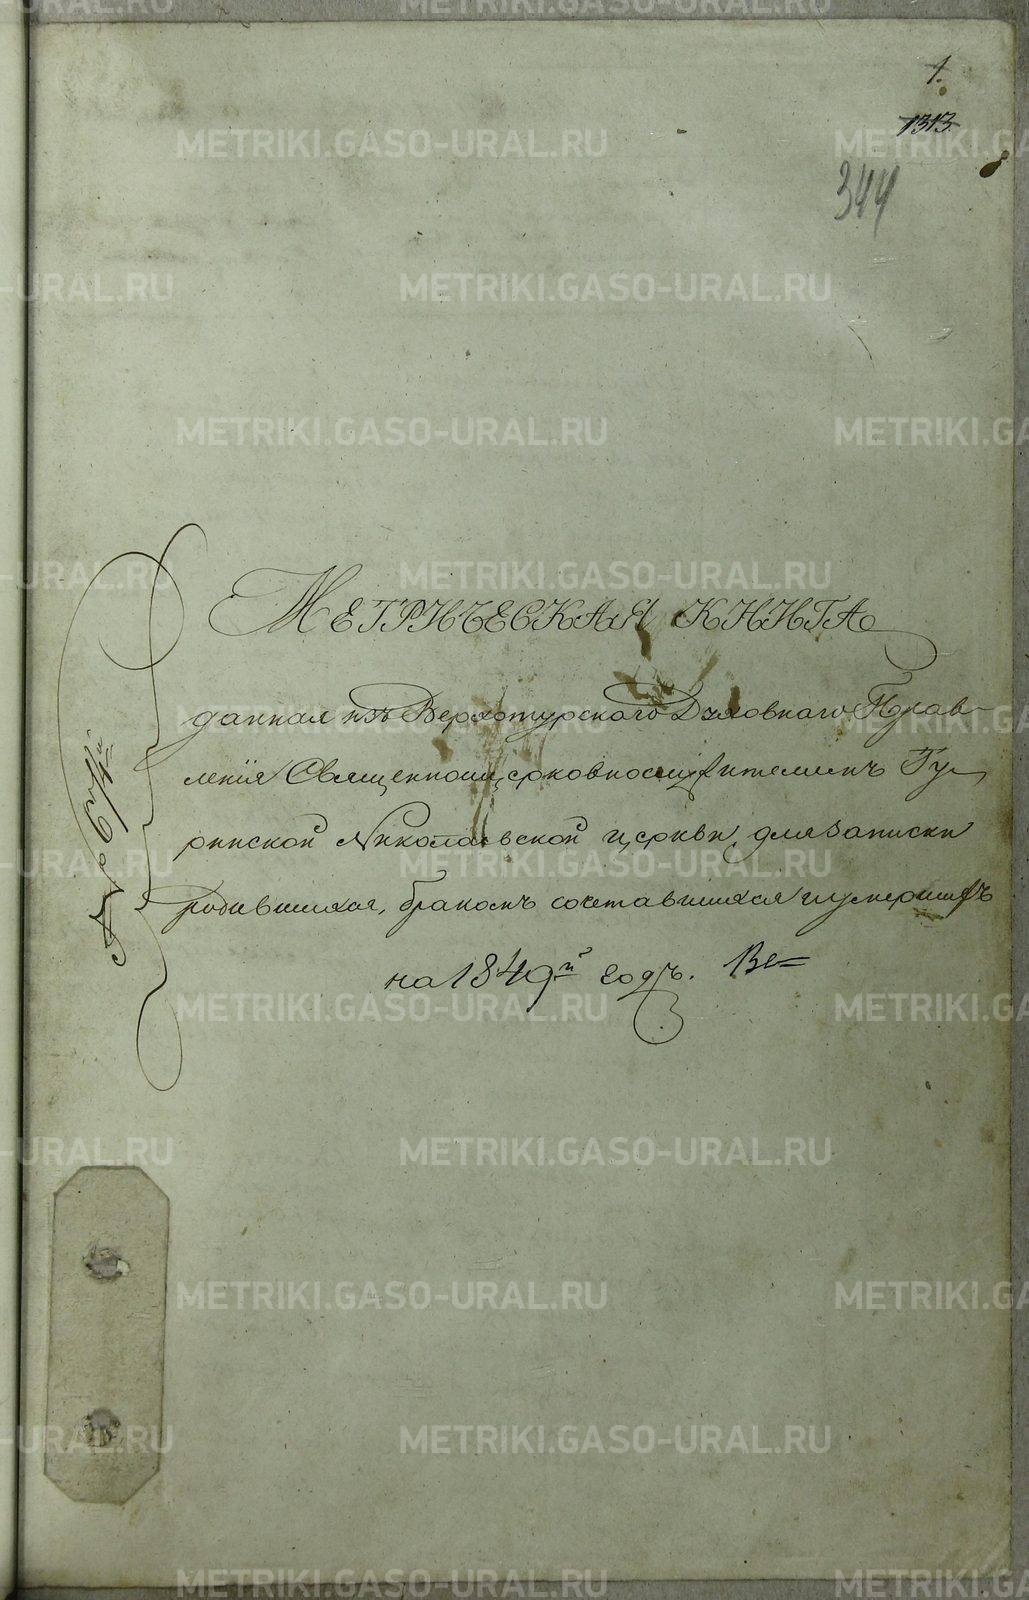 1.
1313.
344
МЕТРИЧЕСКАЯ КНИГА
данная изъ Верхотурскаго Духовнаго Прав-
ленія Священноцерковнослужителямъ Ту-
ринской Николаевской церкви, для записки
родившихся, бракомъ сочетавшихся и умершихъ
на 1849й годъ.
№ 67й
METRIKI.GASO-URAL.RU